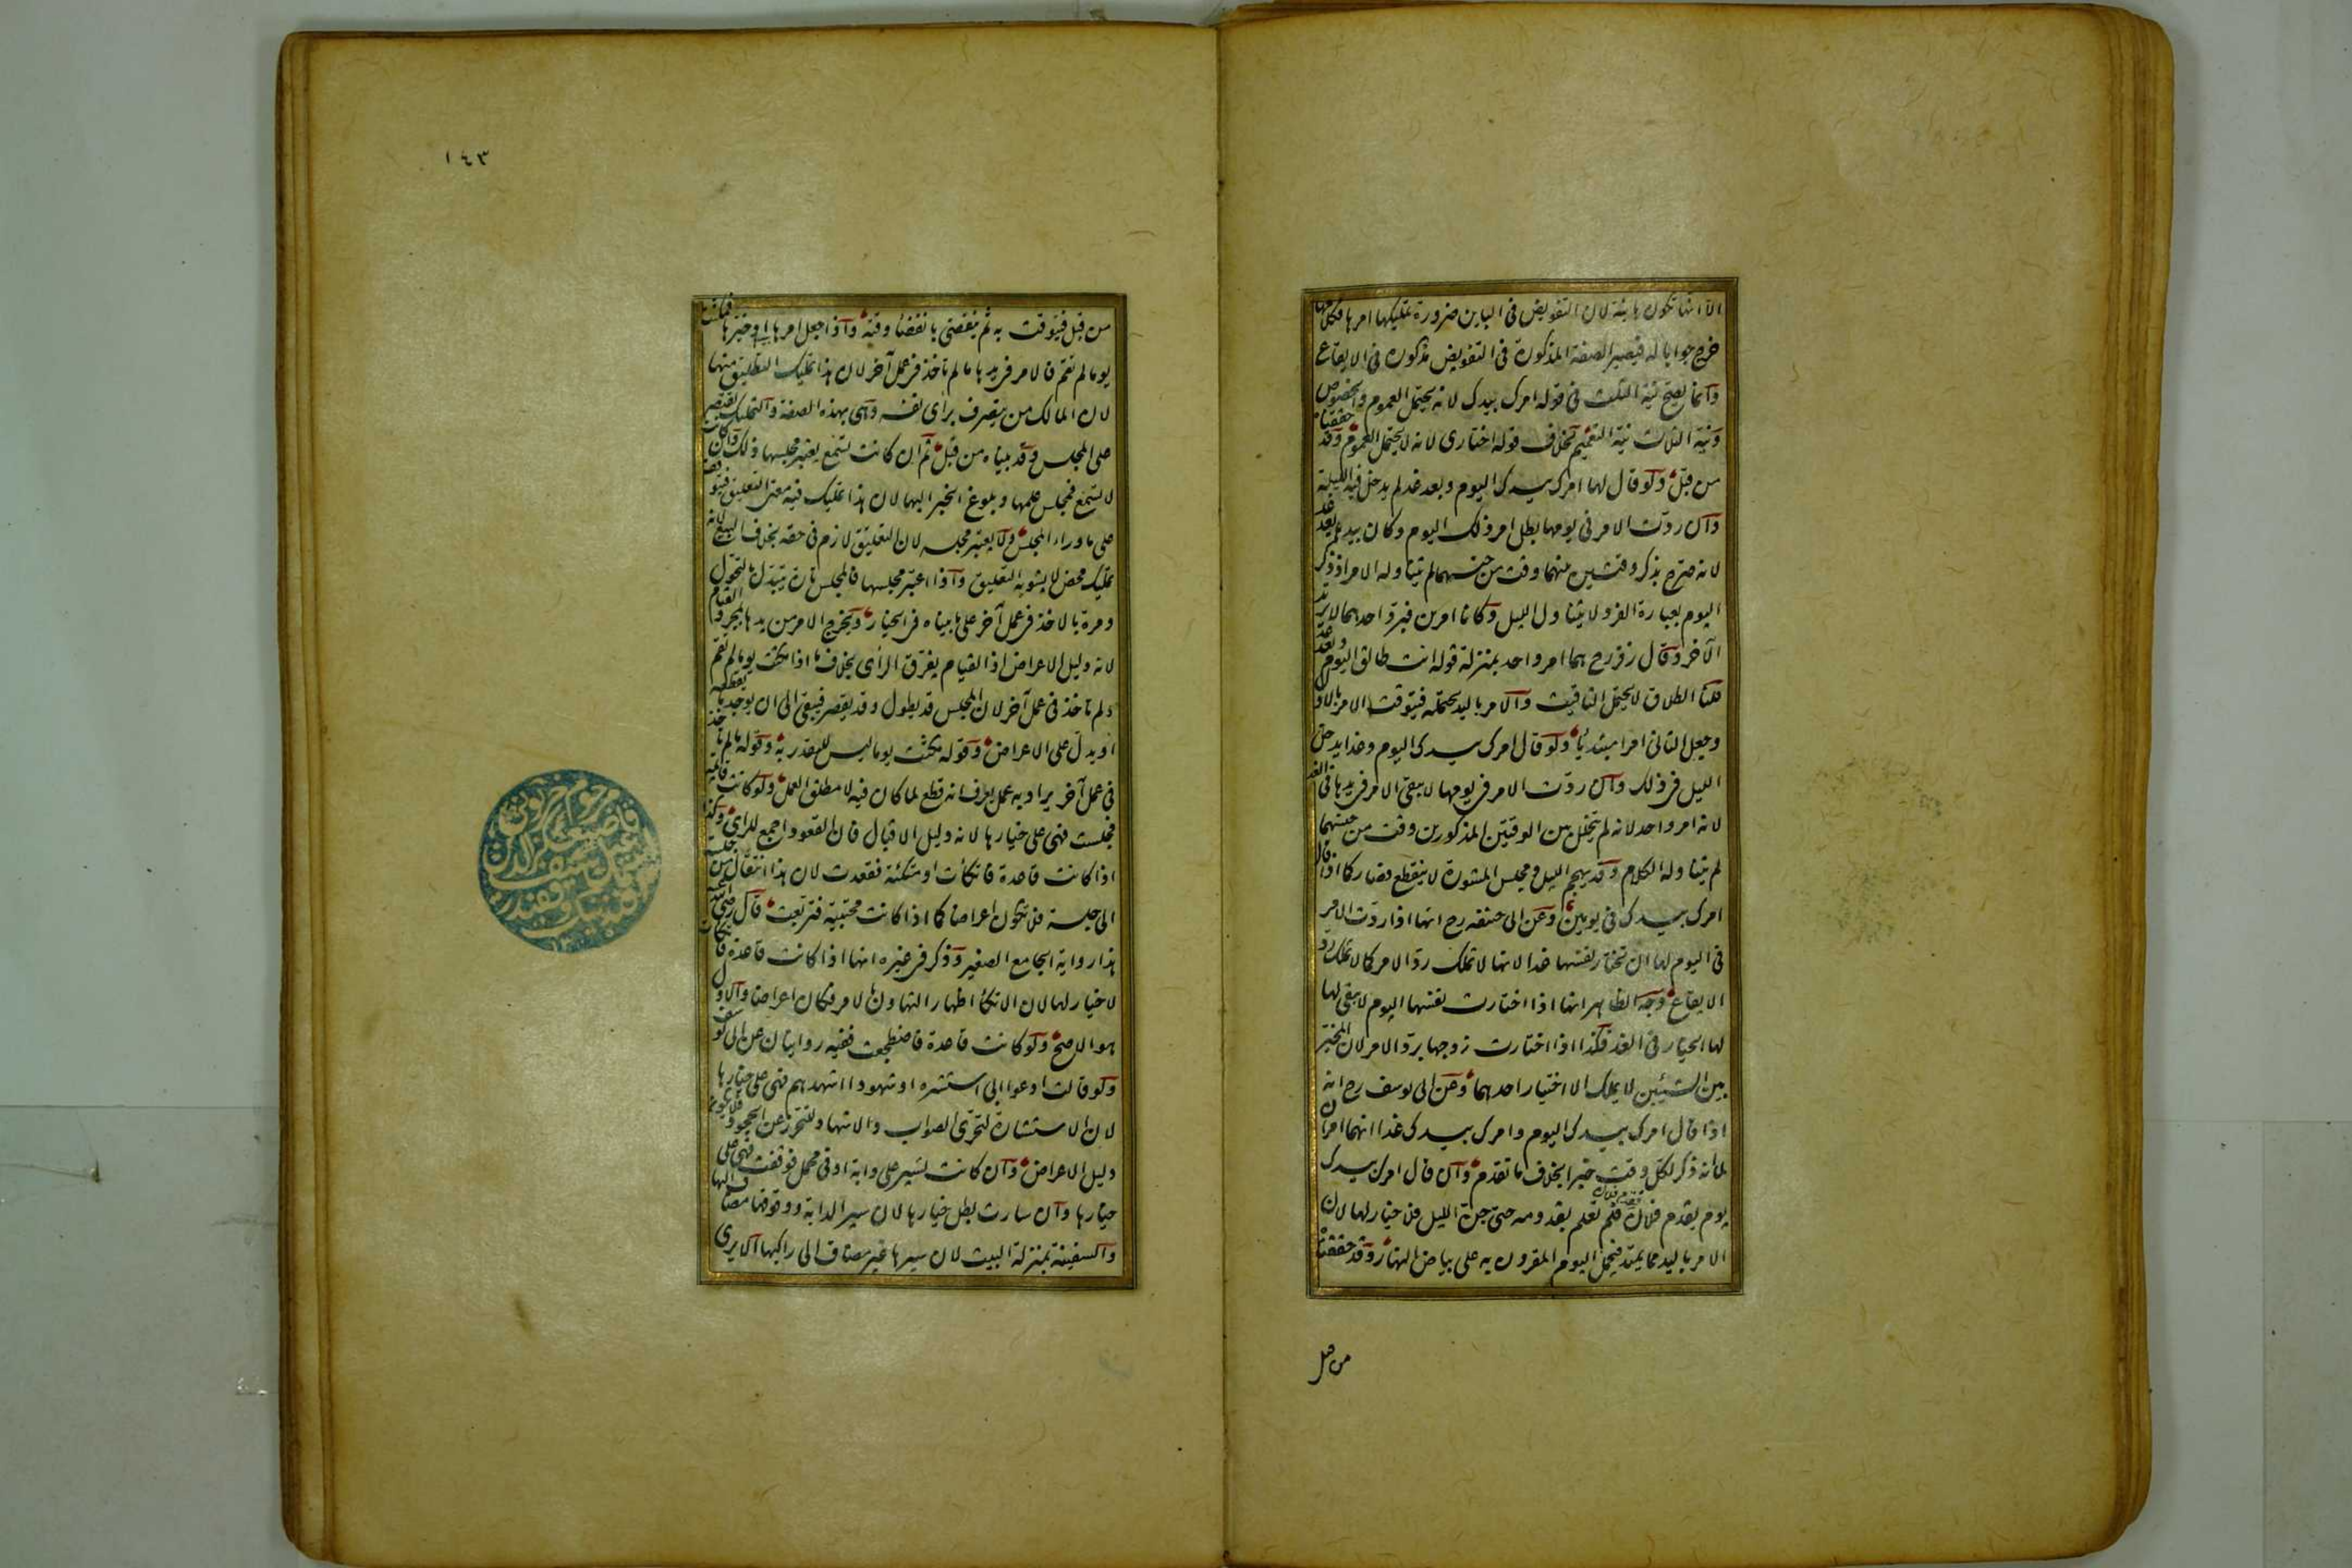 الا انها تكون بائنة لان التفويض في البائن ضرورة تمليكها امرها وكلامها
خرج جوابا له فيصير الصفة المذكورة في التفويض مذكورة في الايقاع
وانما يصح نية الثلث في قوله امرك بيدك لانه يحتمل العموم والخصوص
ونية الثلث نية التعميم بخلاف قوله اختاري لانه لا يحتمل العموم وقد حققناه
من قبل ولو قال لها امرك بيدك اليوم وبعد غد لم يدخل فيه الليلة
وان ردت الامر في يومها بطل امر ذلك اليوم وكان بيدها بعد غد
لانه صرح بذكر وقتين بينهما وقت من جنسهما لم يتناوله الامر اذ ذكر
اليوم بعبارة الفرد لا يتناول الليل وكانا امرين فبرد احدهما لا يرتد
الآخر وقال زفر رح هما امر واحد بمنزلة قوله انت طالق اليوم وبعد غد
قلنا الطلاق لا يحتمل التاقيت والامر باليد يحتمله فيتوقت الامر بالاول
وجعل الثاني امرا مبتدئا ولو قال امرك بيدك اليوم وغدا يدخل
الليل في ذلك وان ردت الامر في يومها لا يبقى الامر في يدها في الغد
لانه امر واحد لانه لم يتخلل بين الوقتين المذكورين وقت من جنسهما
لم يتناوله الكلام وقد يهجم الليل ومجلس المشورة لا ينقطع فصار كما اذا قال
امرك بيدك في يومين وعن ابى حنيفه رح انها اذا ردت الامر
في اليوم لها ان تختار نفسها غدا لانها لا تملك رد الامر كما لا تملك رد
الايقاع وجه الظاهر انها اذا اختارت نفسها اليوم لا يبقى لها
لها الخيار في الغد فكذا اذا اختارت زوجها برد الامر لان المخير
بين الشيئين لا يملك الا اختيار احدهما وعن ابى يوسف رح انه
اذا قال امرك بيدك اليوم وامرك بيدك غدا انهما امران
لما انه ذكر لكل وقت خبرا بخلاف ما تقدم وان قال امرك بيدك
يوم يقدم فلان فقدم فلان فلم تعلم بقدومه حتى جن الليل فلا خيار لها لان
الامر باليد مما يمتد فيحمل اليوم المقرون به على بياض النهار وقد حققناه
من قبل
١٤٣
من قبل فيتوقت به ثم ينقضي بانقضاء وقته واذا جعل امرها بيدها او خيرها فمكثت
يوما لم تقم فالامر في يدها ما لم تاخذ في عمل آخر لان هذا تمليك التطليق منها
لان المالك من يتصرف براى نفسه وهي بهذه الصفة والتمليك يقتصر
على المجلس وقد بيناه من قبل ثم ان كانت تسمع يعتبر مجلسها ذلك وان كانت
لا تسمع فمجلس علمها وبلوغ الخبر اليها لان هذا تمليك فيه معنى التعليق فيتوقف
على ما وراء المجلس ولا يعتبر مجلسه لان التعليق لازم في حقه بخلاف البيع لانه
تمليك محض لا يشوبه التعليق واذا اعتبر مجلسها فالمجلس تارة يتبدل بالتحول
ومرة بالاخذ في عمل آخر على ما بيناه في الخيار ويخرج الامر من يدها بمجرد القيام
لانه دليل الاعراض اذ القيام يفرق الراى بخلاف ما اذا مكثت يوما لم تقم
ولم تاخذ في عمل آخر لان المجلس قد يطول وقد يقصر فيبقى الى ان يوجد ما يقطعه
او يدل على الاعراض وقوله مكثت يوما ليس للتقدير به وقوله ما لم تاخذ
في عمل آخر يراد به عمل يعرف انه قطع لما كان فيه لا مطلق العمل ولو كانت قائمة
فجلست فهى على خيارها لانه دليل الاقبال فان القعود اجمع للراى وكذا
اذا كانت قاعدة فاتكأت او متكئة فقعدت لان هذا انتقال من جلسة
الى جلسة فلا تكون اعراضا كما اذا كانت محتبية فتربعت قال رضى الله عنه
هذا رواية الجامع الصغير وذكر في غيره انها اذا كانت قاعدة فاتكأت
لا خيار لها لان الاتكاء اظهار التهاون بالامر فكان اعراضا والاول
هو الاصح ولو كانت قاعدة فاضطجعت ففيه روايتان عن ابى يوسف
ولو قالت ادعوا ابى استشره او شهودا اشهدهم فهى على خيارها
لان الاستشارة لتحرى الصواب والاشهاد للتحرز عن الجحود فلا يكون
دليل الاعراض وان كانت تسير على دابة او في محمل فوقفت فهى على
خيارها وان سارت بطل خيارها لان سير الدابة ووقوفها مضاف اليها
والسفينة بمنزلة البيت لان سيرها غير مضاف الى راكبها الا يرى